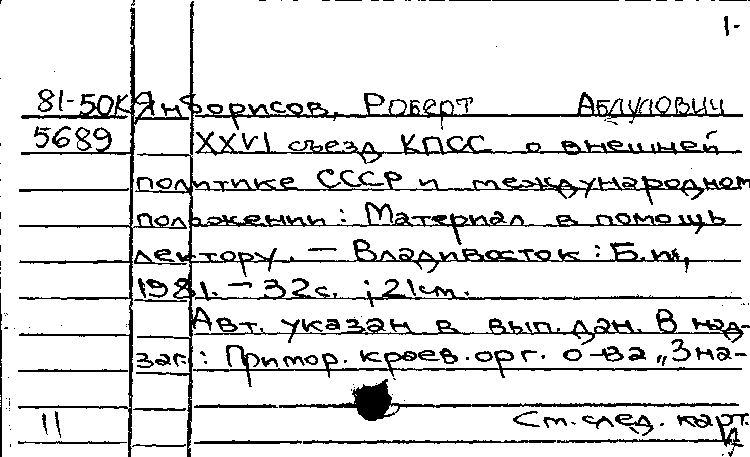 1-
81-50К Янборисов, Роберт Абдулович
5689 XXVI съезд КПСС о внешней
политике СССР и международном
положении: Материал в помощь
лектору. — Владивосток: Б.и.,
1981. — 32с. ; 21см.
Авт. указан в вып. дан. В над-
заг.: Примор. краев. орг. о-ва „Зна-
11 См. след. карт.